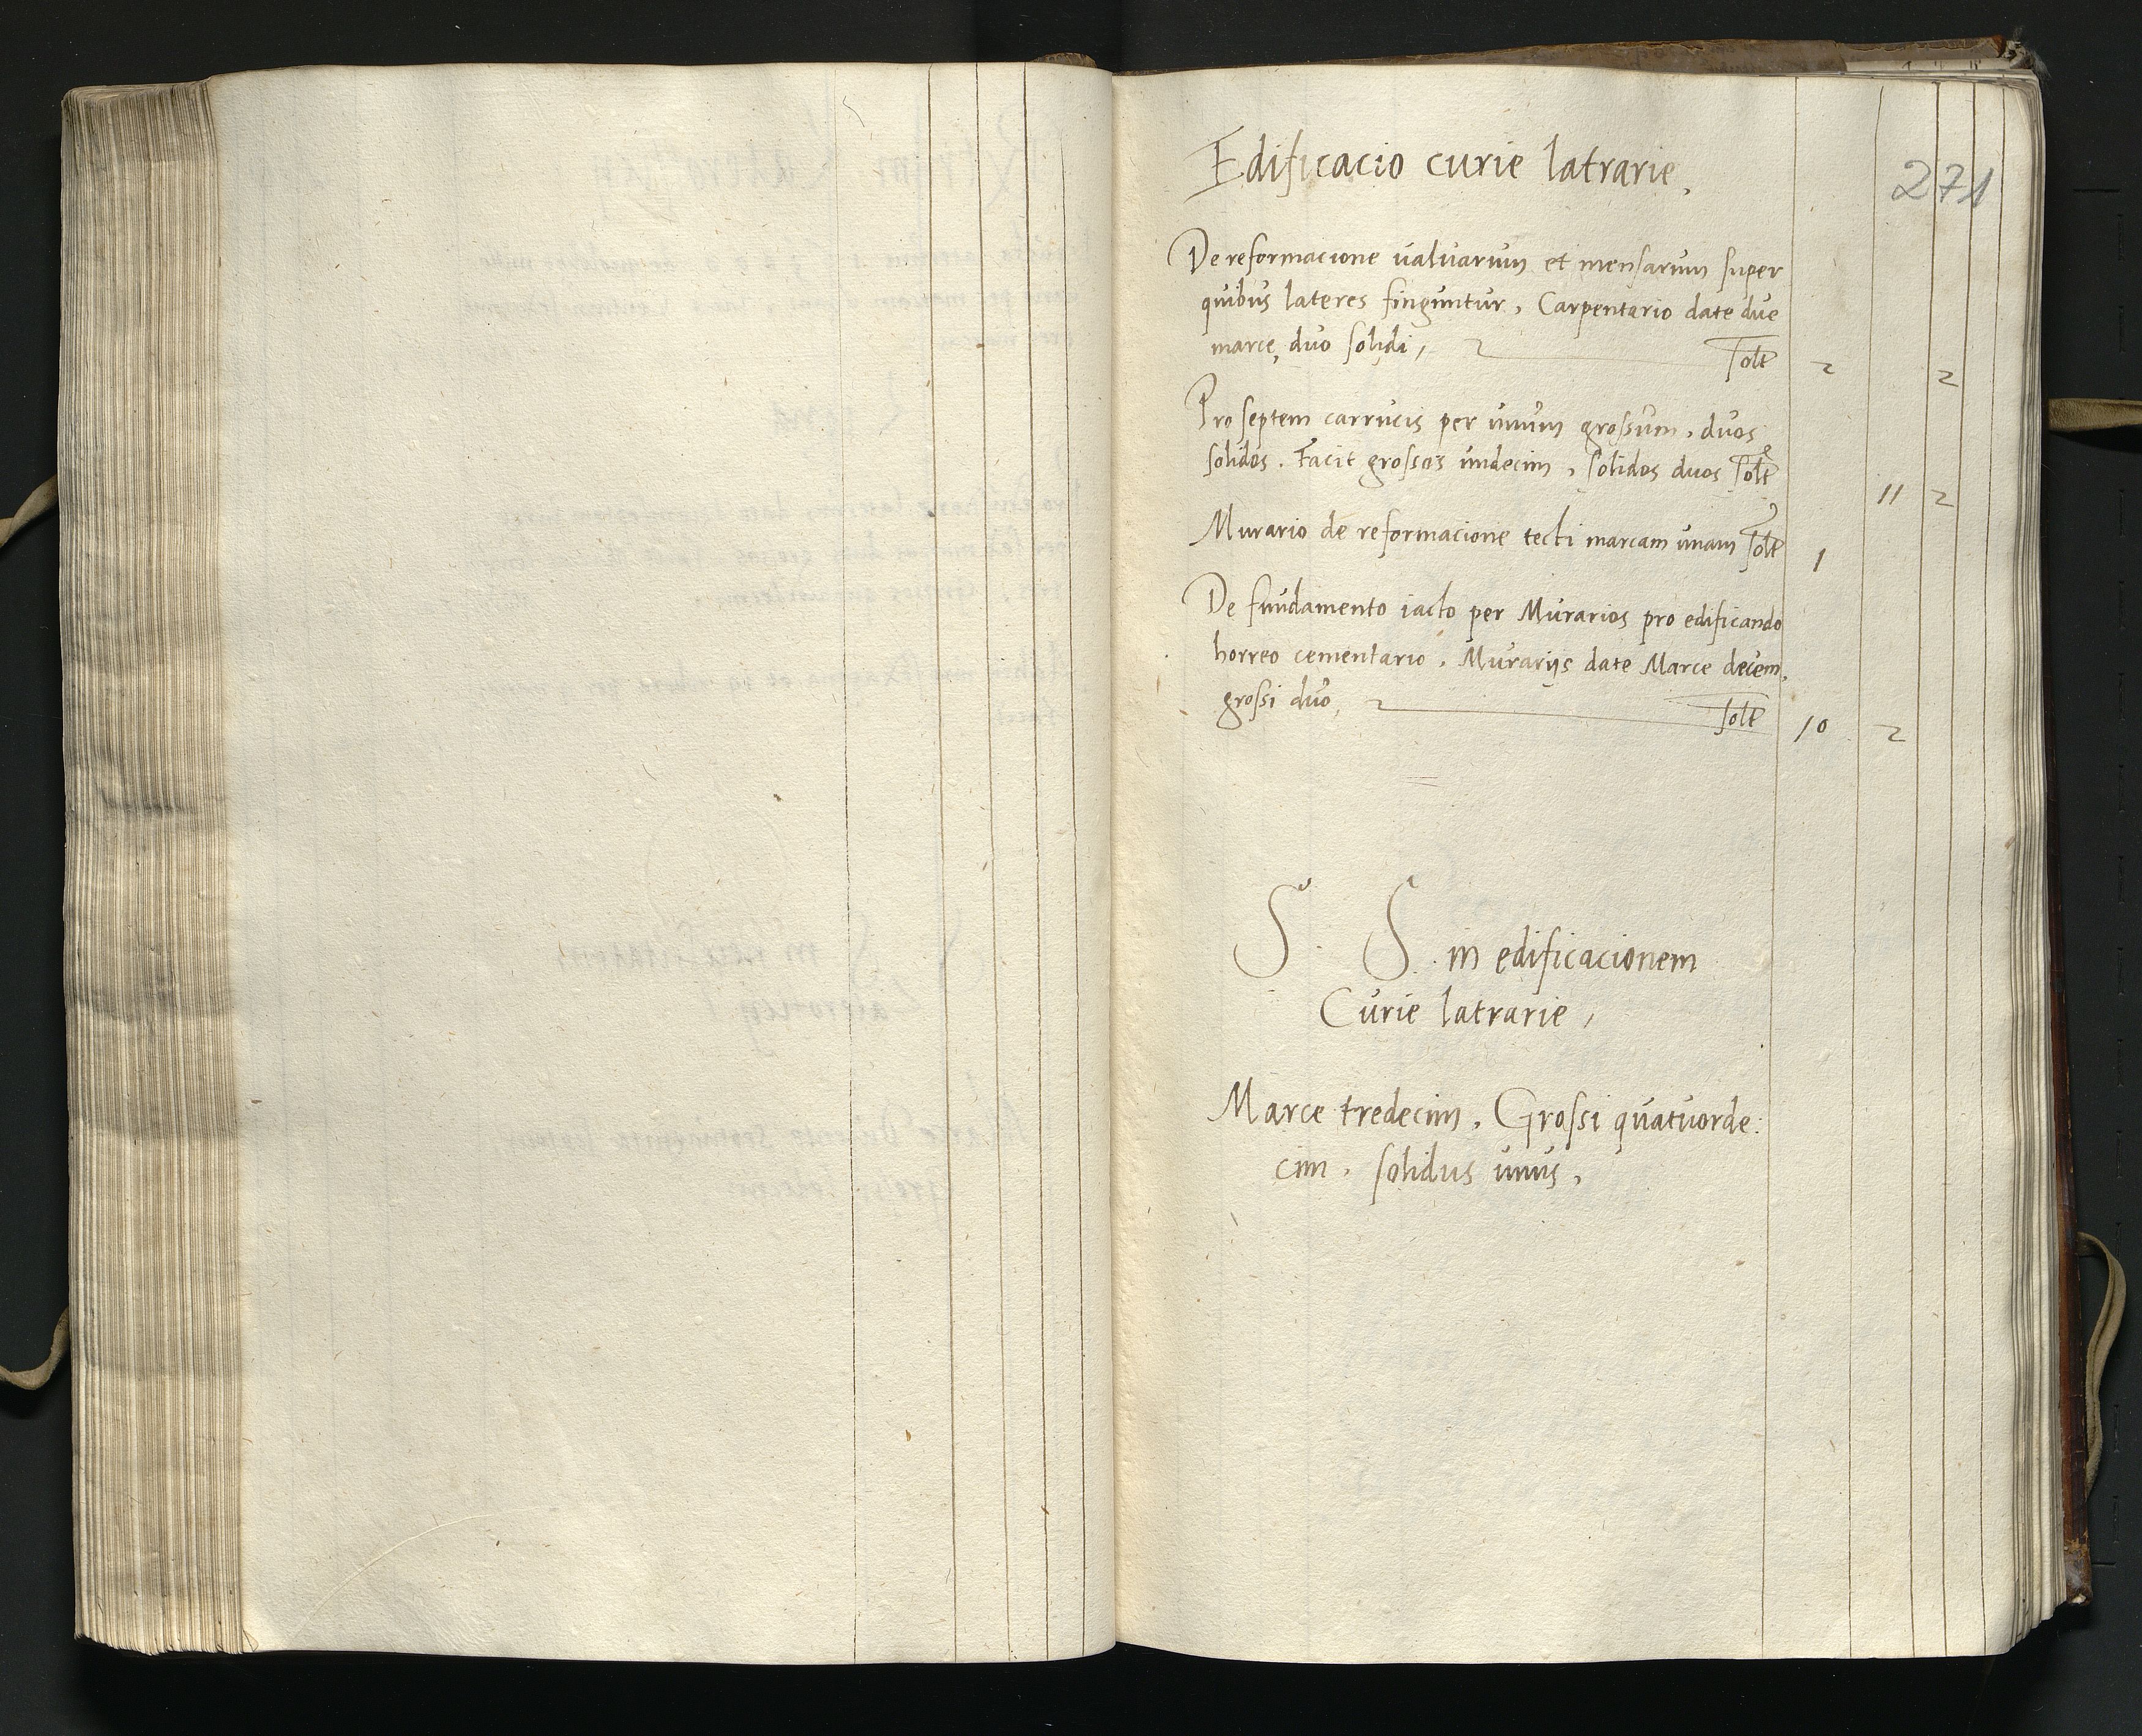 Edificacio curie latrarie,
271
De reformacione valvarum et mensarum super
quibus lateres finguntur, Carpentario date due
marce, duo solidi, solt 2 2
Pro septem carrucis per unum grossum, duos
solidos. Facit grossos undecim, solidos duos solt 11 2
Murario de reformacione tecti marcam unam solt 1
De fundamento iacto per Murarios pro edificando
horreo cementario, Murarijs date Marce decem,
grossi duo, solt 10 2
S. S. in edificacionem
Curie latrarie,
Marce tredecim, Grossi quatuorde:
cim, solidus unus,